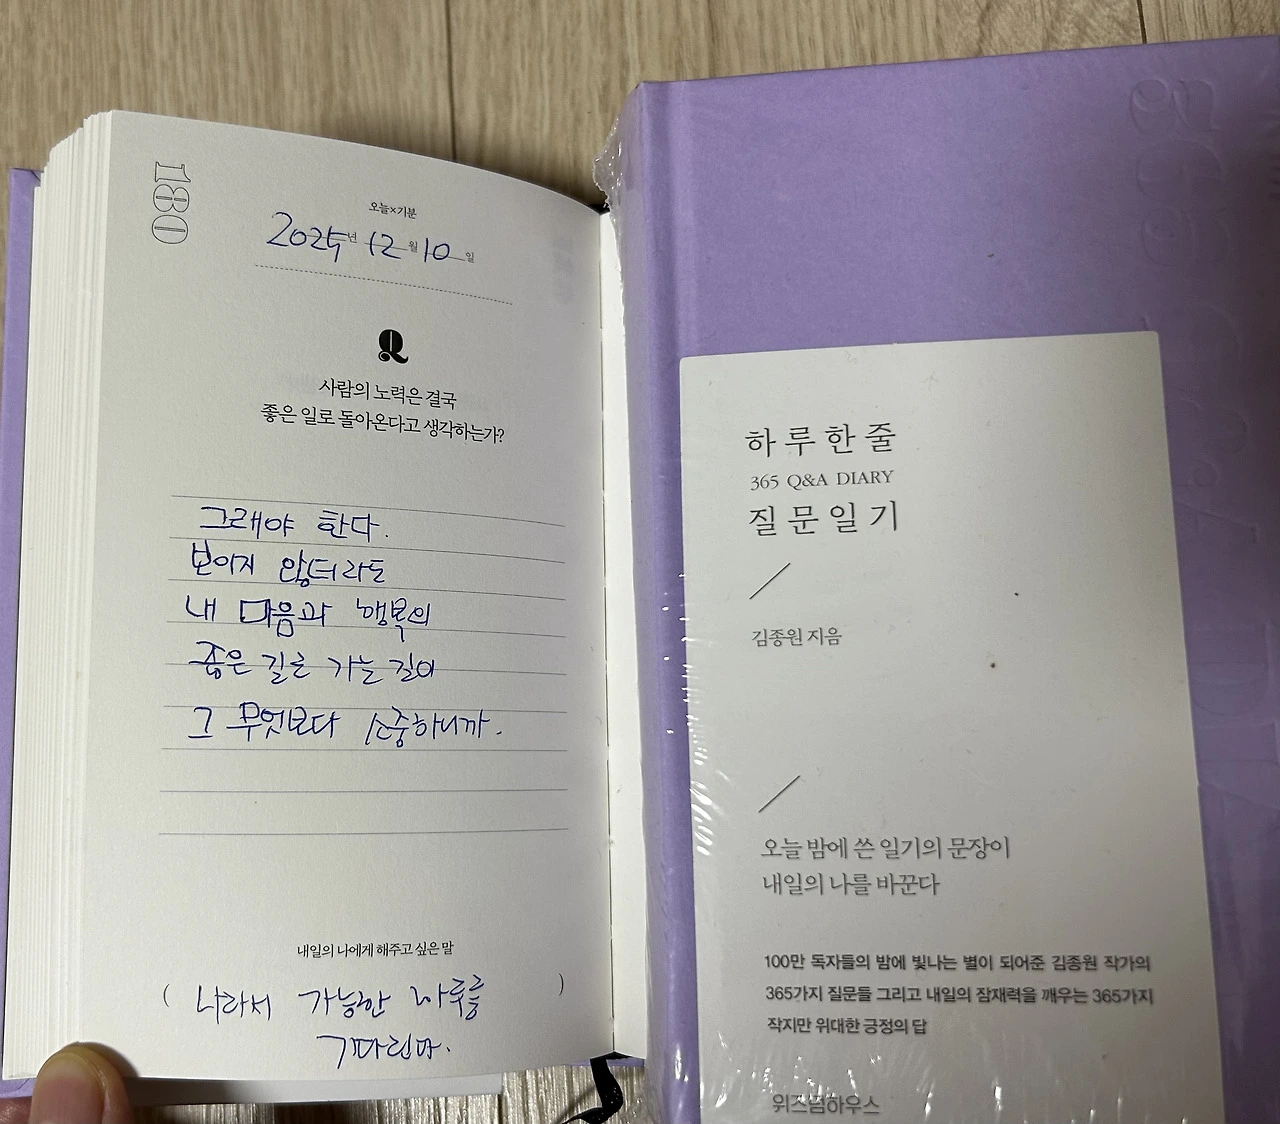 180
오늘×기분
2025년 12월 10일
Q
사람의 노력은 결국
좋은 일로 돌아온다고 생각하는가?
그래야 한다.
보이지 않더라도
내 마음과 행복의
좋은 길로 가는 길이
그 무엇보다 소중하니까.
내일의 나에게 해주고 싶은 말
( 나라서 가능한 하루를 )
기다린다.
하루한줄
365 Q&A DIARY
질문일기
김종원 지음
오늘 밤에 쓴 일기의 문장이
내일의 나를 바꾼다
100만 독자들의 밤에 빛나는 별이 되어준 김종원 작가의
365가지 질문들 그리고 내일의 잠재력을 깨우는 365가지
작지만 위대한 긍정의 답
위즈덤하우스